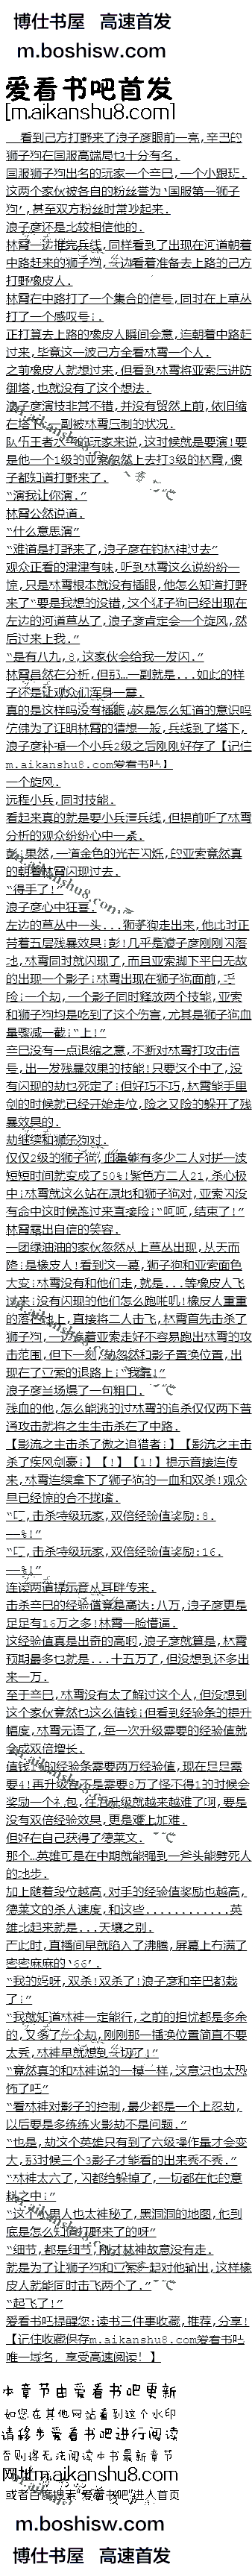 博仕书屋 高速首发
m.boshisw.com
爱看书吧首发
[m.aikanshu8.com]
看到己方打野来了浪子彦眼前一亮,辛巴的
狮子狗在国服高端局也十分有名.
国服狮子狗出名的玩家一个辛巴,一个小跟班.
这两个家伙被各自的粉丝誉为‘国服第一狮子
狗’,甚至双方粉丝时常吵起来.
浪子彦还是比较相信他的.
林霄一边推完兵线,同样看到了出现在河道朝着
中路赶来的狮子狗,一边看着准备去上路的己方
打野橡皮人.
林霄在中路打了一个集合的信号,同时在上草丛
打了一个感叹号:.
正打算去上路的橡皮人瞬间会意,连朝着中路赶
过来,毕竟这一波己方全看林霄一个人.
之前橡皮人就想过来,但看到林霄将亚索压进防
御塔,也就没有了这个想法.
浪子彦演技非常不错,并没有贸然上前,依旧缩
在塔下,一副被林霄压制的状况.
队伍王者火箭的玩家来说,这时候就是要演!要
是他一个1级的亚索忽然上去打3级的林霄,傻
子都知道打野来了.
“演我让你演.”
林霄公然说道.
“什么意思演”
“难道是打野来了,浪子彦在钓林神过去”
观众正看的津津有味,听到林霄这么说纷纷一
惊,只是林霄根本就没有插眼,他怎么知道打野
来了“要是我想的没错,这个狮子狗已经出现在
左边的河道草丛了,浪子彦肯定会一个旋风,然
后过来上我.”
“是有八九,8,这家伙会给我一发闪.”
林霄虽然在分析,但那…一副就是...如此的样
子还是让观众们浑身一震.
真的是这样吗没有插眼,这是怎么知道的意识吗
仿佛为了证明林霄的猜想一般,兵线到了塔下,
浪子彦补掉一个小兵2级之后刚刚好存了【记住
m.aikanshu8.com爱看书吧】
一个旋风.
远程小兵,同时技能.
看起来真的就是要小兵清兵线,但提前听了林霄
分析的观众纷纷心中一紧.
彭:果然,一道金色的光芒闪烁,的亚索竟然真
的朝着林霄闪现过去.
“得手了!”
浪子彦心中狂喜.
左边的草丛中一头...狮子狗走出来,他此时正
带着五层残暴效果:彭!几乎是浪子彦刚刚闪落
地,林霄同时就闪现了,而且亚索脚下平白无故
的出现一个影子:林霄出现在狮子狗面前,
险:一个劫,一个影子同时释放两个技能,亚索
和狮子狗均是吃到了这个伤害,尤其是狮子狗血
量骤减一截:“上!”
辛巴没有一点退缩之意,不断对林霄打攻击信
号,出一发残暴效果的技能!只要这个中了,没
有闪现的劫也死定了:但好巧不巧,林霄能手里
剑的时候就已经开始走位,险之又险的躲开了残
暴效果的.
劫继续和狮子狗对.
仅仅2级的狮子狗,血量能有多少二人对拼一波
短短时间就变成了50%!紫色方二人21,杀心极
中:林霄就这么站在原地和狮子狗对,亚索闪没
有命中这时候走过来直接险:“呵呵,结束了!”
林霄露出自信的笑容.
一团绿油油的家伙忽然从上草丛出现,从天而
降:是橡皮人!看到这一幕,狮子狗和亚索面色
大变:林霄没有和他们走,就是...等橡皮人飞
过来:没有闪现的他们怎么跑啦叽!橡皮人重重
的落在地上,直接将二人击飞,林霄首先击杀了
狮子狗,一边挨着亚索走好不容易跑出林霄的攻
击范围,但下一刻,劫忽然和影子置换位置,出
现在了亚索的退路上:“我靠!”
浪子彦当场爆了一句粗口.
残血的他,怎么能逃的过林霄的追杀仅仅两下普
通攻击就将之生生击杀在了中路.
【影流之主击杀了傲之追猎者:】【影流之主击
杀了疾风剑豪:】【!】【1!】提示音接连传
来,林霄连续拿下了狮子狗的一血和双杀!观众
早已经惊的合不拢嘴.
“叮,击杀特级玩家,双倍经验值奖励:8.
——%!”
“叮,击杀特级玩家,双倍经验值奖励:16.
——%!”
连续两道提示音从耳畔传来.
击杀辛巴的经验值竟是高达:八万,浪子彦更是
足足有16万之多!林霄一脸懵逼.
这经验值真是出奇的高啊,浪子彦就算是,林霄
预期最多也就是...十五万了,但没想到还多出
来一万.
至于辛巴,林霄没有太了解过这个人,但没想到
这个家伙竟然也这么值钱:但看到经验条的提升
幅度,林霄无语了,每一次升级需要的经验值就
会成双倍增长.
值钱1的经验条需要两万经验值,现在足足需
要4!再升级岂不是需要8万了怪不得1的时候会
奖励一个礼包,往后升级就越来越难了啊,要是
没有双倍经验效果,更是难上加难.
但好在自己获得了德莱文.
那个…英雄可是在中期就能强到一斧头能劈死人
的地步.
加上随着段位越高,对手的经验值奖励也越高,
德莱文的杀人速度,和这些............英
雄比起来就是...天壤之别.
与此时,直播间早就陷入了沸腾,屏幕上布满了
密密麻麻的‘66’.
“我的妈呀,双杀!双杀了!浪子彦和辛巴都栽
了:”
“我就知道林神一定能行,之前的担忧都是多余
的,又多了一个劫,刚刚那一播换位置简直不要
太秀,林神早就想到一切了!”
“竟然真的和林神说的一模一样,这意识也太恐
怖了吧”
“看林神对影子的控制,最少都是一个上忍劫,
以后要是多练练火影劫不是问题.”
“也是,劫这个英雄只有到了六级操作量才会变
大,那时候三个3影子才能看的出来秀不秀.”
“林神太六了,闪都给躲掉了,一切都在他的意
料之中:”
“这个…男人也太神秘了,黑洞洞的地图,他到
底是怎么知道打野来了的呀”
“细节,都是细节,刚才林神故意没有走.
就是为了让狮子狗和亚索一起对他输出,这样橡
皮人就能同时击飞两个了.”
“起飞了!”
爱看书吧提醒您:读书三件事收藏,推荐,分享!
【记住收藏保存m.aikanshu8.com爱看书吧
唯一域名, 享受高速阅读! 】
本章节由爱看书吧更新
如您在其他网站看到这个水印
请移步爱看书吧进行阅读
否则得无法阅读本书最新章节
网址m.aikanshu8.com
或者百度搜索‘爱看书吧’进入首页
m.boshisw.com
博仕书屋 高速首发